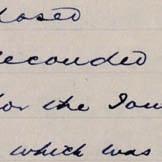 closed
seconded
for the
which was